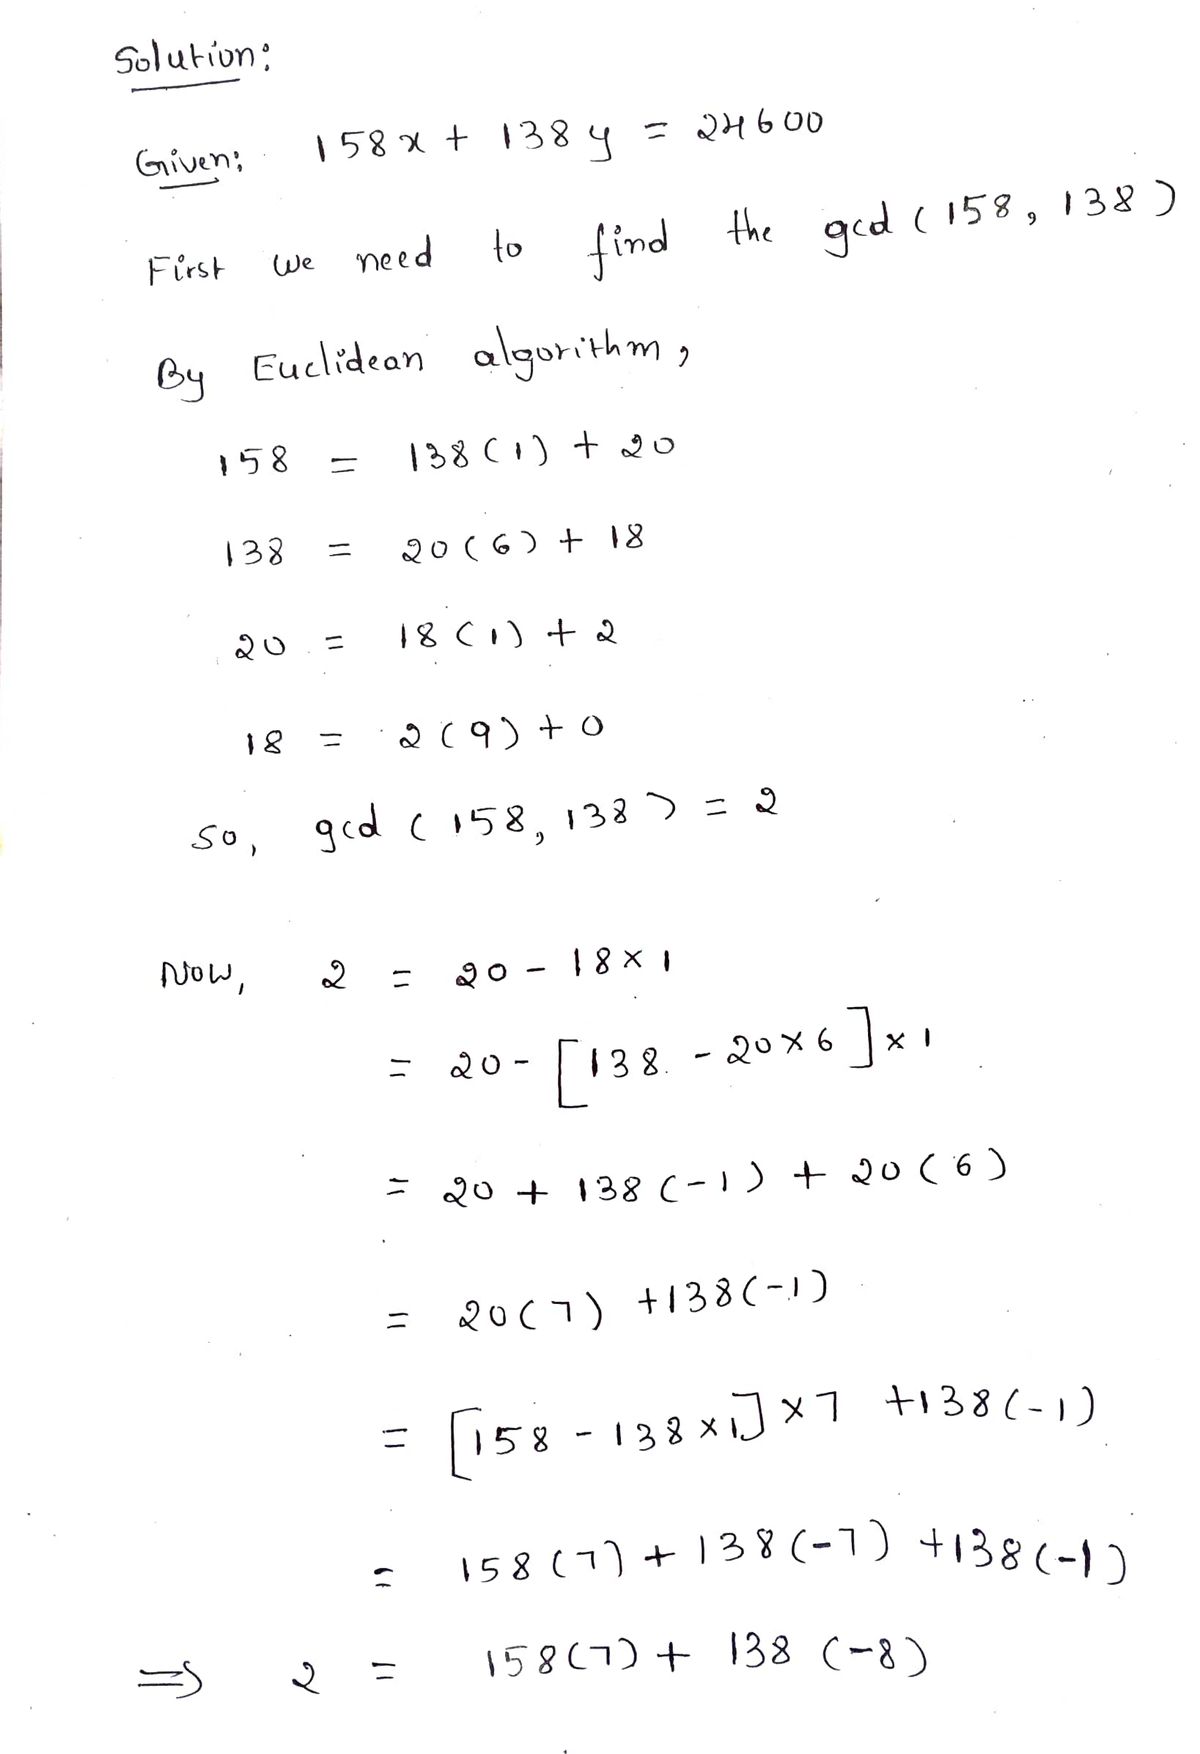 Solution:
Given: 158x + 138y = 24600
First we need to find the gcd (158, 138)
By Euclidean algorithm,
158 = 138(1) + 20
138 = 20(6) + 18
20 = 18(1) + 2
18 = 2(9) + 0
So, gcd (158, 138) = 2
Now, 2 = 20 - 18×1
= 20 - [138 - 20×6]×1
= 20 + 138(-1) + 20(6)
= 20(7) +138(-1)
= [158 - 138×1]×7 +138(-1)
= 158(7) + 138(-7) +138(-1)
⇒ 2 = 158(7) + 138 (-8)